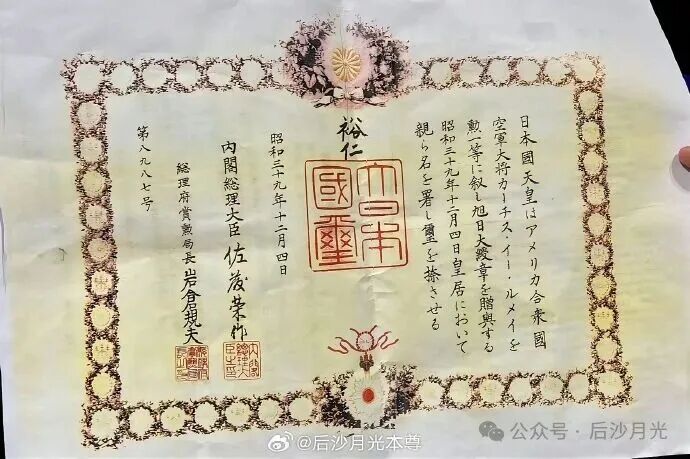 日本國天皇はアメリカ合衆國
空軍大将カーチス・イー・ルメイを
勲一等に叙し旭日大綬章を贈與する
昭和三十九年十二月四日皇居において
親ら名を署し璽を捺させる
裕仁
大日本
國璽
昭和三十九年十二月四日
内閣総理大臣 佐藤榮作
総理府賞勲局長 岩倉規夫
第八九八七号
@后沙月光本尊
公众号·后沙月光